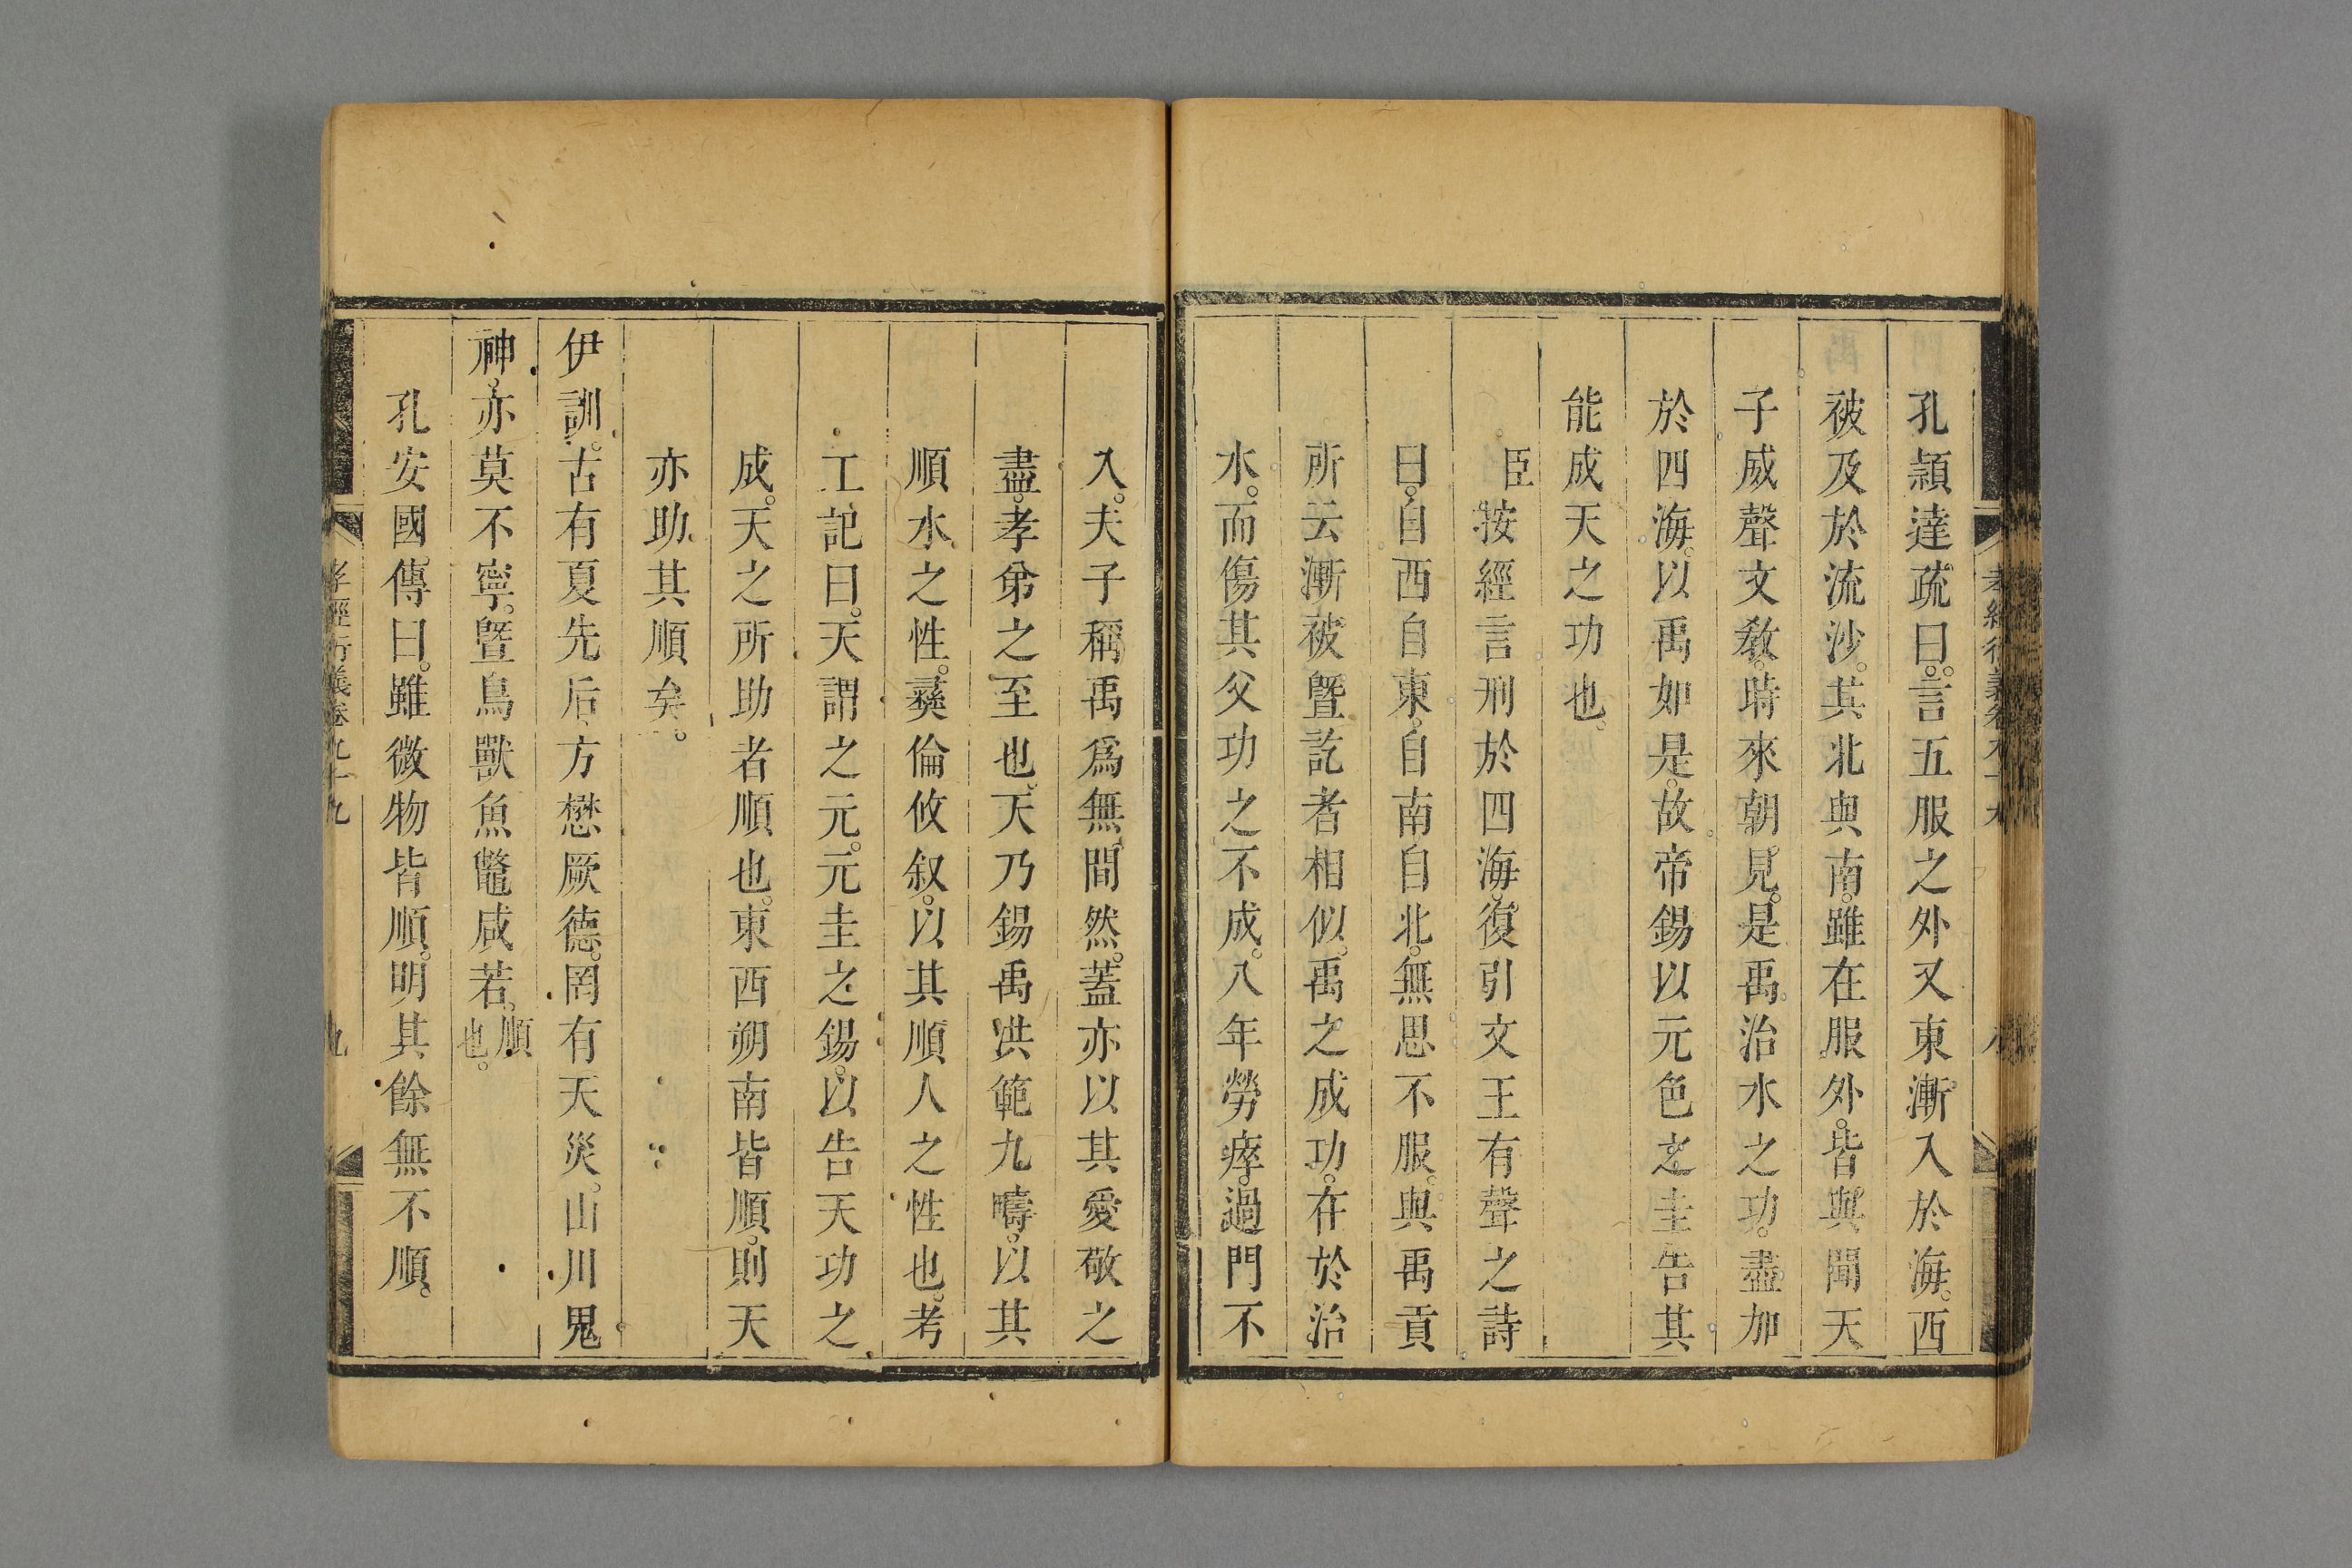 孔頴達疏曰。言五服之外又東漸入於海。西
被及於流沙。其北與南。雖在服外。皆與聞天
子威聲文敎。時來朝見。是禹治水之功。盡加
於四海。以禹如是。故帝錫以元色之圭告其
能成天之功也。
臣按經言刑於四海。復引文王有聲之詩
曰。自西自東。自南自北。無思不服。與禹貢
所云漸被曁訖者相似。禹之成功。在於治
水。而傷其父功之不成。八年勞瘁。過門不
入。夫子稱禹爲無間然。蓋亦以其愛敬之
盡。孝弟之至也。天乃錫禹洪範九疇。以其
順水之性。彝倫攸叙。以其順人之性也。考
工記曰。天謂之元。元圭之錫。以告天功之
成。天之所助者順也。東西朔南皆順。則天
亦助其順矣。
伊訓。古有夏先后方懋厥德。罔有天災。山川鬼
神。亦莫不寧。曁鳥獸魚鼈咸若。順也。
孔安國傳曰。雖微物皆順。明其餘無不順。
孝經衍義卷九十九
九